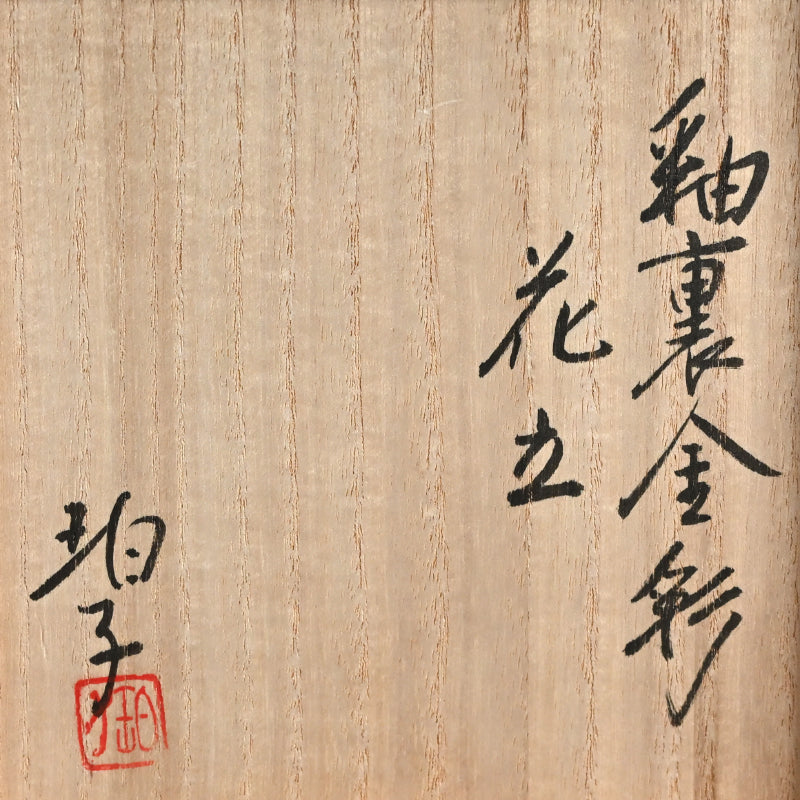 釉裏金彩
花立
珀子
珀子